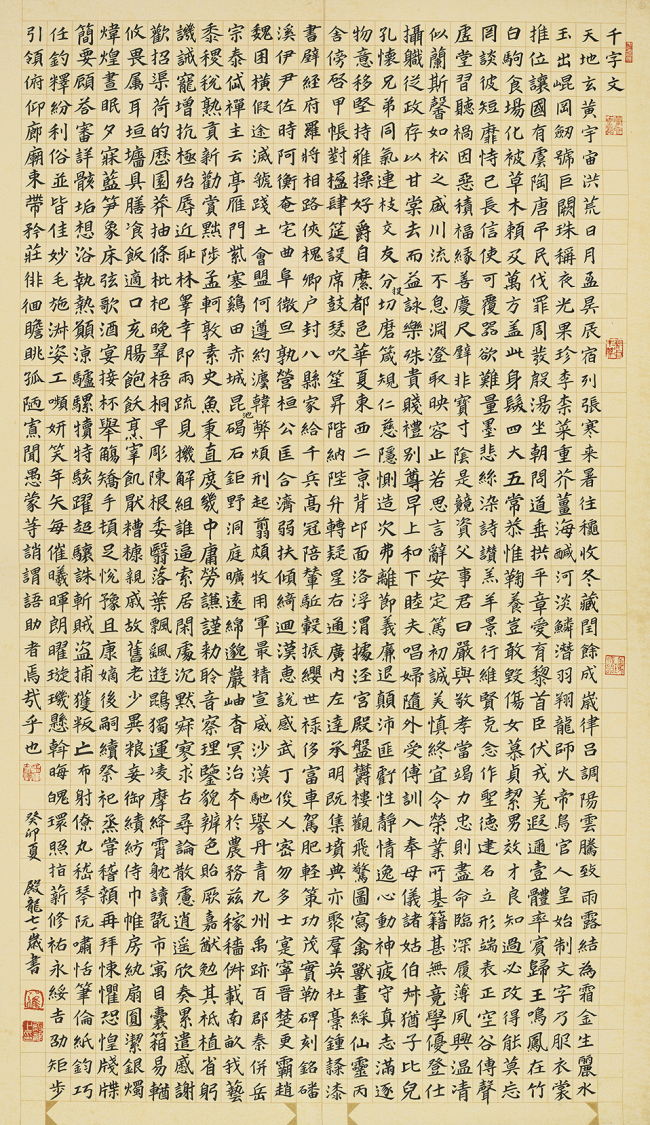 千字文
天地玄黃宇宙洪荒日月盈昃辰宿列張寒來暑往穐收冬藏閏餘成歲律呂調陽雲騰致雨露結為霜金生麗水
玉出崐岡劒號巨闕珠稱夜光果珍李柰菜重芥薑海鹹河淡鱗潛羽翔龍師火帝鳥官人皇始制文字乃服衣裳
推位讓國有虞陶唐弔民伐罪周發殷湯坐朝問道垂拱平章愛育黎首臣伏戎羌遐邇壹體率賓歸王鳴鳳在竹
白駒食場化被草木賴及萬方蓋此身髮四大五常恭惟鞠養豈敢毀傷女慕貞絜男效才良知過必改得能莫忘
罔談彼短靡恃己長信使可覆器欲難量墨悲絲染詩讚羔羊景行維賢克念作聖德建名立形端表正空谷傳聲
虛堂習聽禍因惡積福緣善慶尺璧非寶寸陰是競資父事君曰嚴與敬孝當竭力忠則盡命臨深履薄夙興溫清
似蘭斯馨如松之盛川流不息淵澄取映容止若思言辭安定篤初誠美慎終宜令榮業所基籍甚無竟學優登仕
攝職從政存以甘棠去而益詠樂殊貴賤禮別尊卑上和下睦夫唱婦隨外受傅訓入奉母儀諸姑伯叔猶子比兒
孔懷兄弟同氣連枝交友分投切磨箴規仁慈隱惻造次弗離節義廉退顛沛匪虧性靜情逸心動神疲守真志滿逐
物意移堅持雅操好爵自縻都邑華夏東西二京背邙面洛浮渭據涇宮殿盤鬱樓觀飛驚圖寫禽獸畫綵仙靈丙
舍傍啓甲帳對楹肆筵設席鼓瑟吹笙昇階納陛弁轉疑星右通廣內左達承明既集墳典亦聚羣英杜稾鍾隸漆
書壁經府羅將相路俠槐卿戶封八縣家給千兵高冠陪輦駈轂振纓世祿侈富車駕肥輕策功茂實勒碑刻銘磻
溪伊尹佐時阿衡奄宅曲阜微旦孰營桓公匡合濟弱扶傾綺迴漢惠說感武丁俊乂密勿多士寔寧晉楚更霸趙
魏困橫假途滅虢踐土會盟何遵約灋韓弊煩刑起翦頗牧用軍最精宣威沙漠馳譽丹青九州禹跡百郡秦併岳
宗泰岱禪主云亭雁門紫塞鷄田赤城昆池碣石鉅野洞庭曠遠綿邈巖岫杳冥治本於農務茲稼穡俶載南畝我藝
黍稷稅熟貢新勸賞黜陟孟軻敦素史魚秉直庶幾中庸勞謙謹勑聆音察理鑒貌辨色貽厥嘉猷勉其祗植省躬
譏誡寵增抗極殆辱近恥林睾幸即兩疏見機解組誰逼索居閑處沉默寂寥求古尋論散慮逍遙欣奏累遣慼謝
歡招渠荷的歷園莽抽條枇杷晚翠梧桐早彫陳根委翳落葉飄颻遊鵾獨運凌摩絳霄耽讀翫市寓目囊箱易輶
攸畏屬耳垣墻具膳飡飯適口充腸飽飫烹宰飢厭糟糠親戚故舊老少異糧妾御績紡侍巾帷房紈扇圓潔銀燭
煒煌晝眠夕寐藍筍象床弦歌酒宴接杯舉觴矯手頓足悅豫且康嫡後嗣續祭祀蒸嘗稽顙再拜悚懼恐惶牋牒
簡要顧答審詳骸垢想浴執熱願涼驢騾犢特駭躍超驤誅斬賊盜捕獲叛亡布射僚丸嵇琴阮嘯恬筆倫紙鈞巧
任釣釋紛利俗並皆佳妙毛施淑姿工嚬妍笑年矢每催曦暉朗曜璇璣懸斡晦魄環照指薪修祐永綏吉劭矩步
引領俯仰廊廟束帶矜莊徘徊瞻眺孤陋寡聞愚蒙等誚謂語助者焉哉乎也
癸卯夏 殿龍七一歲書